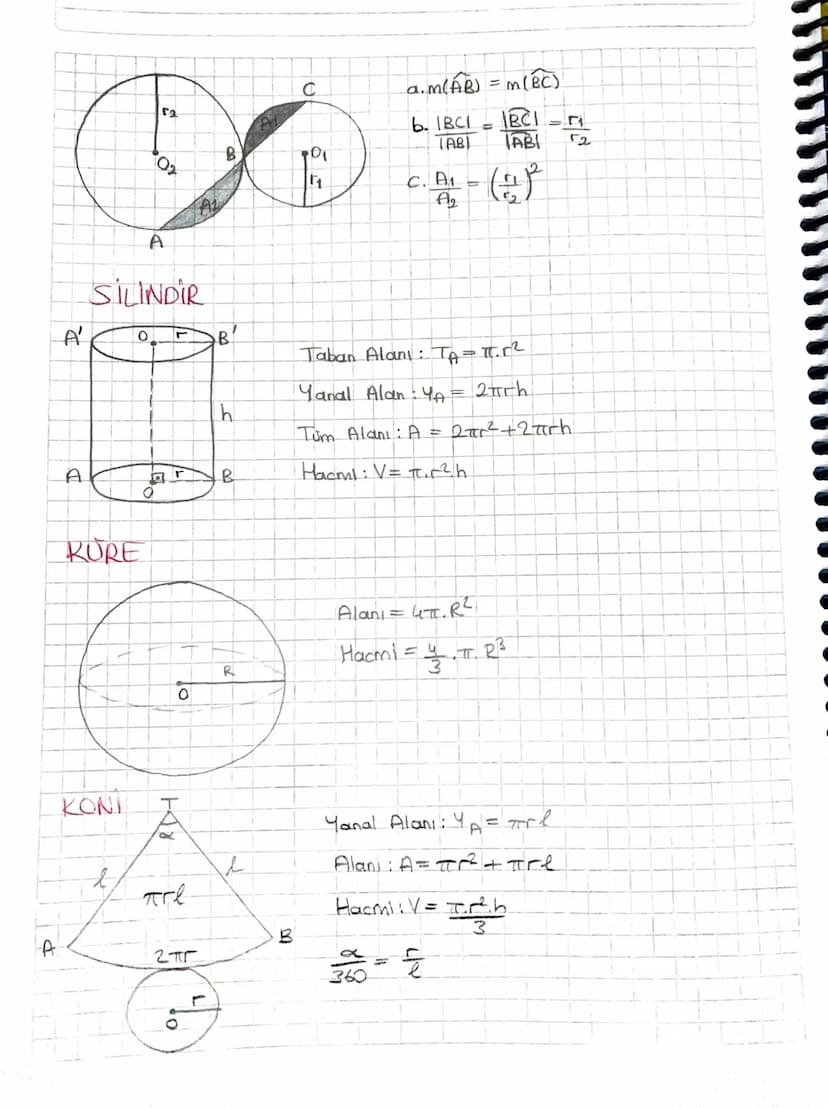 r2
O2
B
A1
C
O1
r1
A2
A
a. m(A͡B) = m(B͡C)
b. |BC|/|AB| = |B͡C|/|A͡B| = r1/r2
c. A1/A2 = (r1/r2)²
SİLİNDİR
A' O r B'
h
A r B
O
Taban Alanı : TA = π.r²
Yanal Alan : YA = 2πrh
Tüm Alanı : A = 2πr²+2πrh
Hacmi : V = π.r².h
KÜRE
R
O
Alanı = 4π.R²
Hacmi = 4/3 .π. R³
KONİ
T
α
l l
πrl
A B
2πr
r
O
Yanal Alanı : YA = πrl
Alanı : A = πr² + πrl
Hacmi : V = π.r².h/3
α/360 = r/l